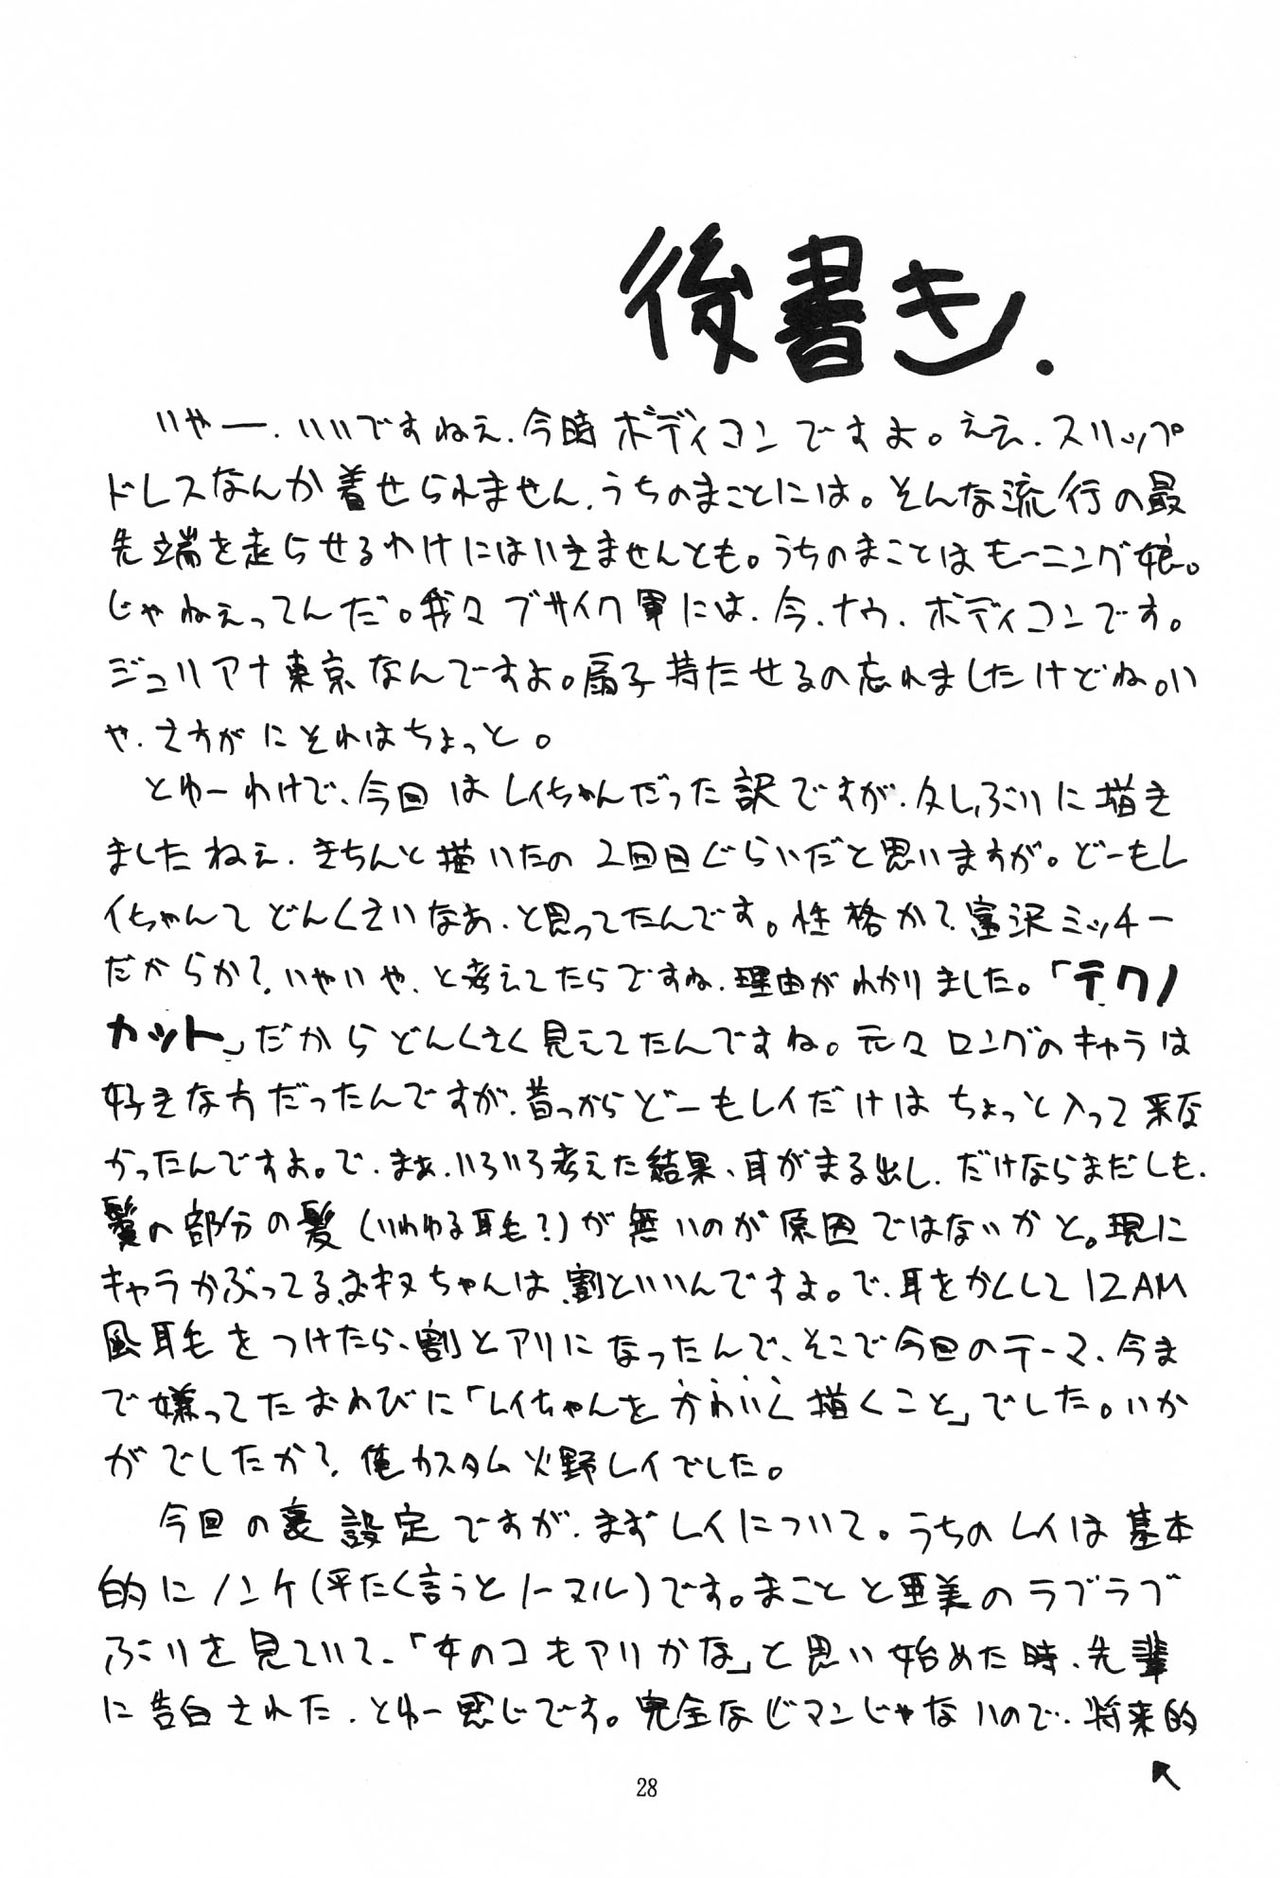 後書き.
いやー.いいですねぇ.今時ボディコンですよ。ええ.スリップ
ドレスなんか着せられません.うちのまことには。そんな流行の最
先端を走らせるわけにはいきませんとも。うちのまことはモーニング娘。
じゃねぇってんだ。我々ブサイク軍には.今.ナウ.ボディコンです。
ジュリアナ東京なんですよ。扇子持たせるの忘れましたけどね。い
や.さすがにそれはちょっと。
とゆーわけで、今回はレイちゃんだった訳ですが.久しぶりに描き
ましたねぇ.きちんと描いたの2回目ぐらいだと思いますが。どーもレ
イちゃんてどんくさいなあ.と思ってたんです。性格か?富沢ミッチー
だからか?いやいや.と考えてたらですね.理由がわかりました。「テクノ
カット」だからどんくさく見えてたんですね。元々ロングのキャラは
好きな方だったんですが.昔っからどーもレイだけはちょっと入って来な
かったんですよ。で.まぁ.いろいろ考えた結果、耳がまる出し.だけならまだしも.
鬢の部分の髪(いわゆる耳毛?)が無いのが原因ではないかと。現に
キャラかぶってるおキヌちゃんは割といいんですよ。で.耳をかくして12AM
風耳毛をつけたら、割とアリになったんで、そこで今回のテーマ、今ま
で嫌ってたおわびに「レイちゃんをかわいく描くこと」でした。いか
がでしたか?俺カスタム火野レイでした。
今回の裏設定ですが.まずレイについて。うちのレイは基本
的にノンケ(平たく言うとノーマル)です。まことと亜美のラブラブ
ぶりを見ていて、「女のコもアリかな」と思い始めた時.先輩
に告白された.とゆー感じです。完全なビアンじゃないので.将来的
28